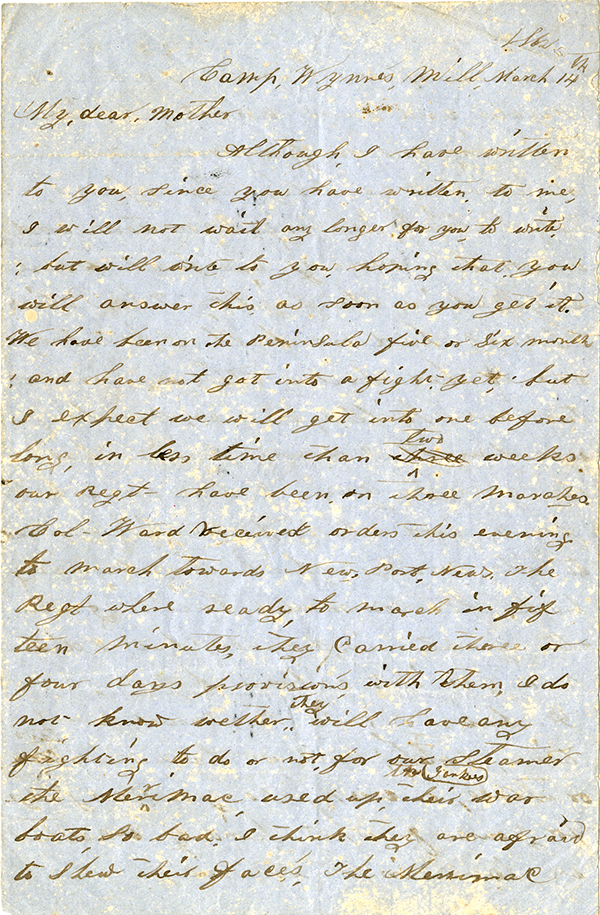 1862
Camp, Wynnes, Mill, March 14th
My, dear, Mother
Although, I have written
to you, since you have written, to me,
I will not wait any longer for you, to write,
; but will write to you, hoping that you
will answer this as soon as you get it.
We have been on the Peninsula five or six month
; and have not got into a fight yet, but
I expect we will get into one before
long, in less time than three two weeks
our Regt- have been on three marches
Col- Ward received orders this evening
to march towards New, Port, News. The
Regt where ready, to march in fif
teen minutes, they, Carried three or
four days provisions with them, I do
not know wether, they will have any
fighting to do or not, for our Steamer
the Merrimac, used up, the Yankees their war
boats, so bad, I think they are afraid
to shew their faces, The Merrimac